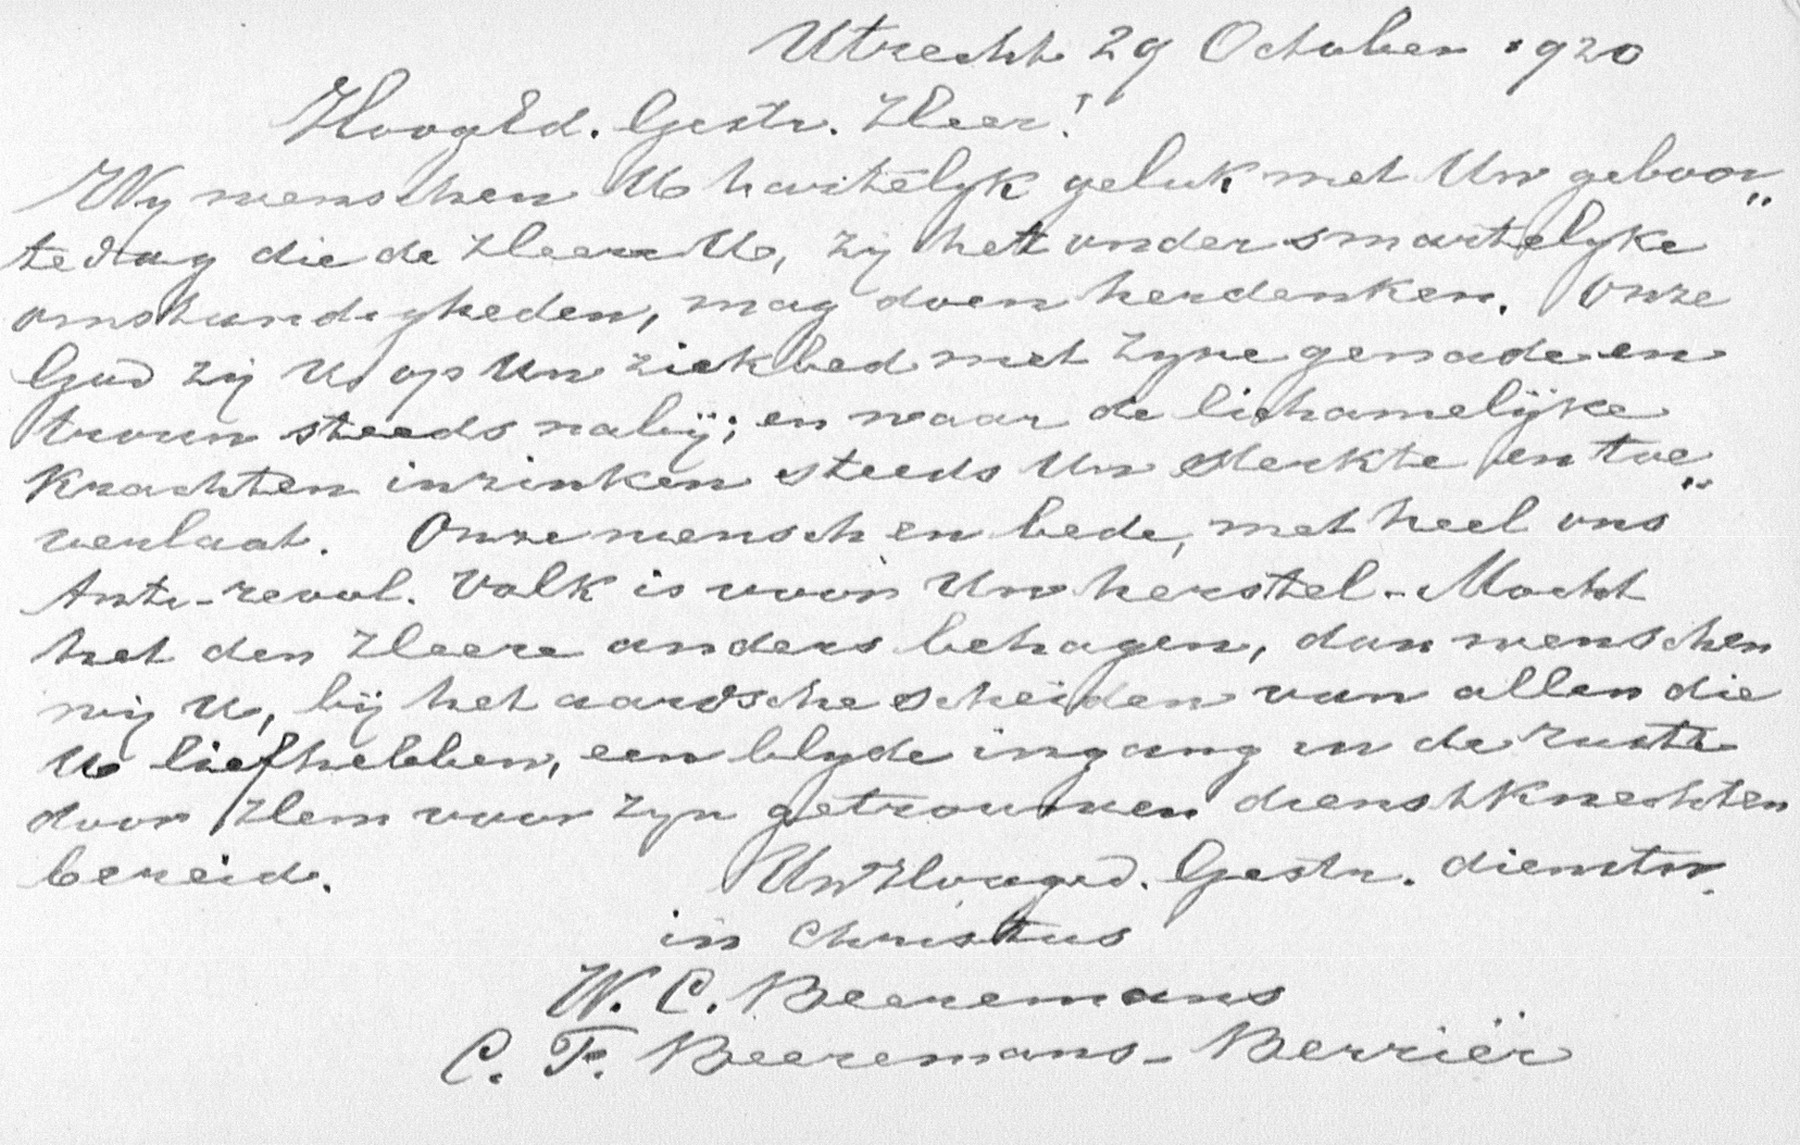 Utrecht 29 October 1920
HoogEd. Gestr. Heer!
Wy wenschen U hartelyk geluk met Uw geboor„
tedag die de Heere U, zij het onder smartelyke
omstandigheden, mag doen herdenken. Onze
God zij U op Uw ziekbed met Zyne genade en
trouw steeds nabij; en waar de lichamelijke
krachten inzinken steeds Uw sterkte en toe„
verlaat. Onze wensch en bede, met heel ons
Anti-revol. Volk is voor Uw herstel. - Mocht
het den Heere anders behagen, dan wenschen
wij U, bij het aardsche scheiden van allen die
U liefhebben, een blyde ingang in de ruste
door Hem voor Zyn getrouwen dienstknechten
bereid. Uw Hooged. Gestr. dienstw.
in Christus
W. C. Beeremans
C. F. Beeremans - Berriër